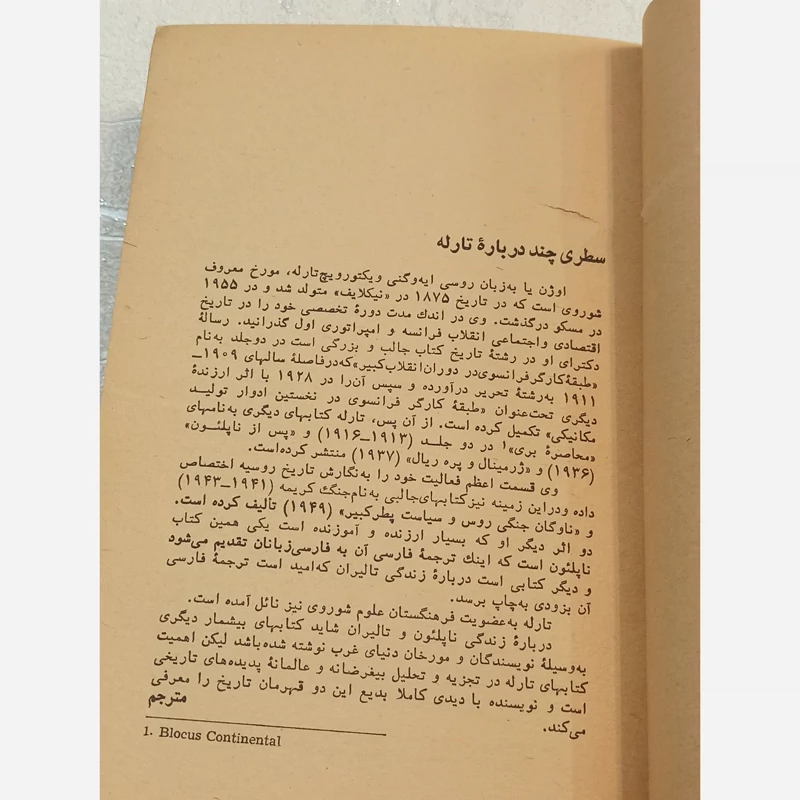 سطری چند دربارهٔ تارله
اوژن یا به‌زبان روسی ایه‌وگنی ویکتورویچ‌تارله، مورخ معروف
شوروی است که در تاریخ ۱۸۷۵ در «نیکلایف» متولد شد و در ۱۹۵۵
در مسکو درگذشت. وی در اندك مدت دورهٔ تخصصی خود را در تاریخ
اقتصادی واجتماعی انقلاب فرانسه و امپراتوری اول گذرانید. رسالهٔ
دکترای او در رشتهٔ تاریخ کتاب جالب و بزرگی است در دوجلد به‌نام
«طبقهٔ‌کارگر‌فرانسوی‌در دوران‌انقلاب‌کبیر»که‌درفاصلهٔ سالهای ۱۹۰۹ـ
۱۹۱۱ به‌رشتهٔ تحریر درآورده و سپس آن‌را در ۱۹۲۸ با اثر ارزندهٔ
دیگری تحت‌عنوان «طبقهٔ کارگر فرانسوی در نخستین ادوار تولید
مکانیکی» تکمیل کرده است. از آن پس، تارله کتابهای دیگری به‌نامهای
«محاصرهٔ بری»۱ در دو جلـد (۱۹۱۳ـ۱۹۱۶) و «پس از ناپلئـون»
(۱۹۳۶) و «ژرمینال و پره ریال» (۱۹۳۷) منتشر کرده‌است.
وی قسمت اعظم فعالیت خود را به‌نگارش تاریخ روسیه اختصاص
داده ودراین زمینه نیز‌کتابهای‌جالبی به‌نام‌جنگ‌ کریمه (۱۹۴۱ـ۱۹۴۳)
و «ناوگان جنگی روس و سیاست پطرکبیر» (۱۹۴۹) تألیف کرده است.
دو اثر دیگر او که بسیار ارزنده و آموزنده است یکی همین کتاب
ناپلئون است که اینك ترجمهٔ فارسی آن به فارسی‌زبانان تقدیم می‌شود
و دیگر کتابی است دربارهٔ زندگی تالیران که‌امید است ترجمهٔ فارسی
آن بزودی به‌چاپ برسد.
تارله به‌عضویت فرهنگستان علوم شوروی نیز نائل آمده است.
دربارهٔ زندگی ناپلئون و تالیران شاید کتابهای بیشمار دیگری
به‌وسیلهٔ نویسندگان و مورخان دنیای غرب نوشته شده‌باشد لیکن اهمیت
کتابهای تارله در تجزیه و تحلیل بیغرضانه و عالمانهٔ پدیده‌های تاریخی
است و نویسنده با دیدی کاملا بدیع این دو قهرمان تاریخ را معرفی
می‌کند.
مترجم
1. Blocus Continental